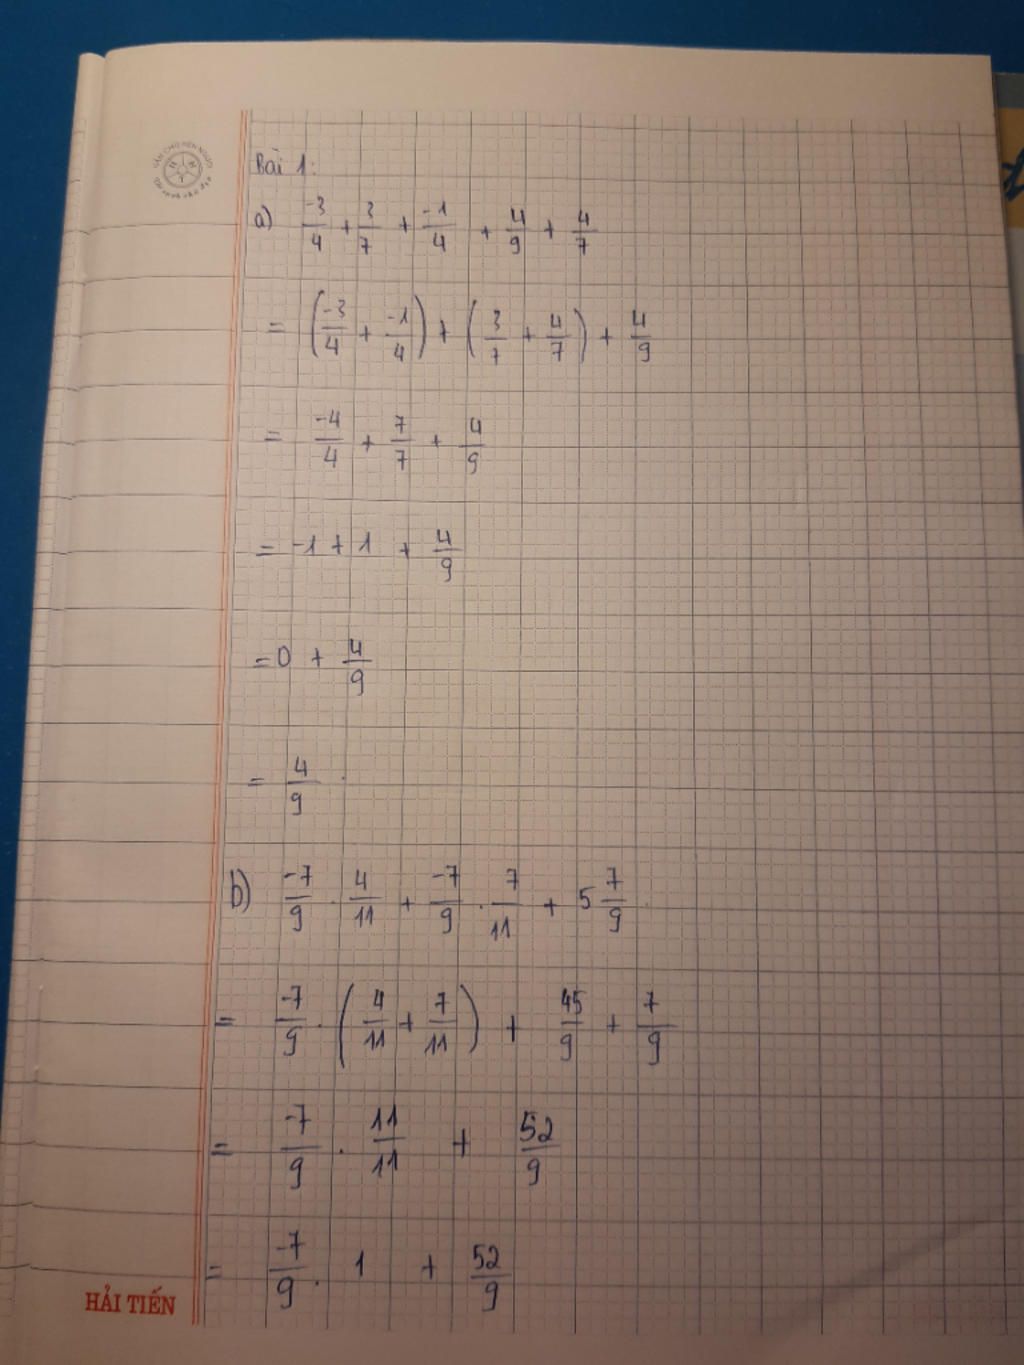 Bài 1:
a) -3/4 + 3/7 + -1/4 + 4/9 + 4/7
= (-3/4 + -1/4) + (3/7 + 4/7) + 4/9
= -4/4 + 7/7 + 4/9
= -1 + 1 + 4/9
= 0 + 4/9
= 4/9.
b) -7/9 . 4/11 + -7/9 . 7/11 + 5 7/9
= -7/9 . (4/11 + 7/11) + 45/9 + 7/9
= -7/9 . 11/11 + 52/9
= -7/9 . 1 + 52/9
HẢI TIẾN